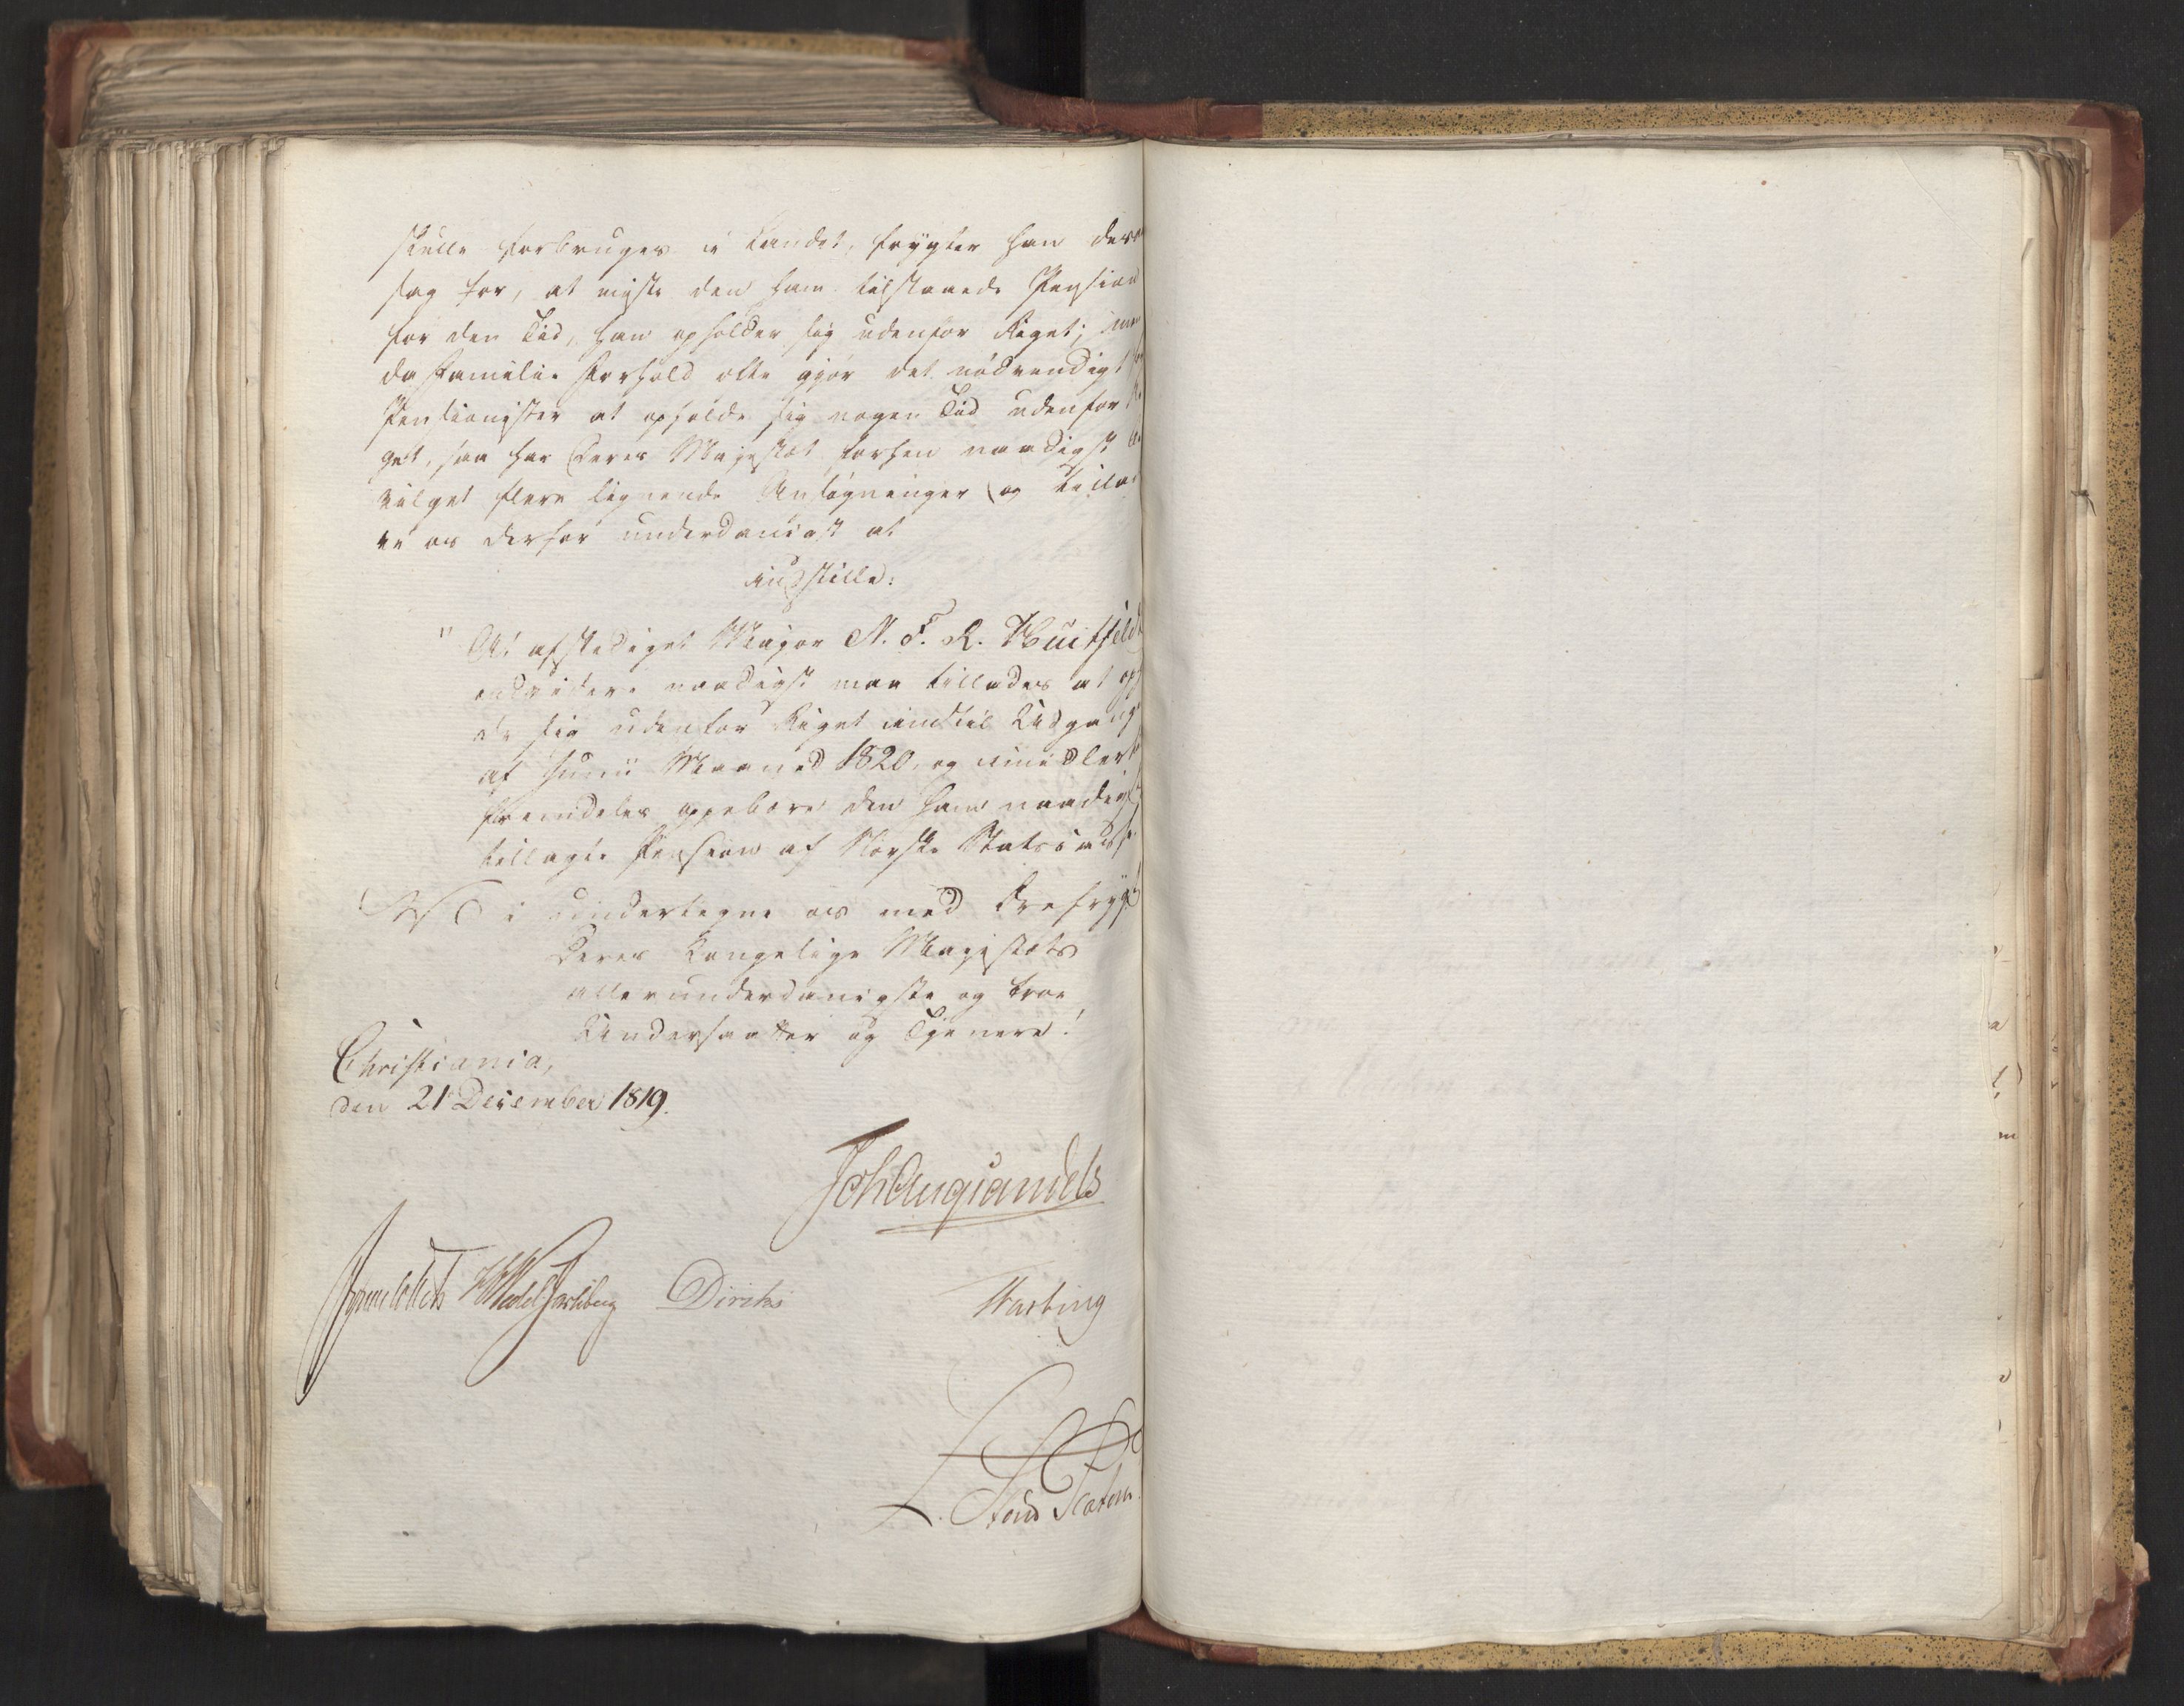 skulle forbruges i Landet, frygter han der-
for, at miste den ham tilstaaede Pension
for den Tid, han opholder sig udenfor Riget; men
da Familie Forhold ofte gjør det nødvendigt
Pensionister at opholde sig nogen Tid udenfor
get, saa har Deres Majestæt forhen naadigst
vilget flere lignende Ansøgninger og tillade
vi os derfor underdanigst at
indstille:
" At afskediget Major N. F. R. Huitfeldt
endvidere naadigst maa tillades at op
de sig udenfor Riget indtil Udgang
af Junii Maaned 1820, og imidlert
fremdeles oppebære den ham naadigst
tillagte Pension af Norske Statscasse
Vi undertegne os med Ærefrygt
Deres Kongelige Majestæts
allerunderdanigste og troe
Undersaatter og Tjenere!
Christiania,
den 21 December 1819.
Joh Aug Sandels
Sommerhielm HWedelJarlsberg Diriks Hasting
L. Stoud Platou